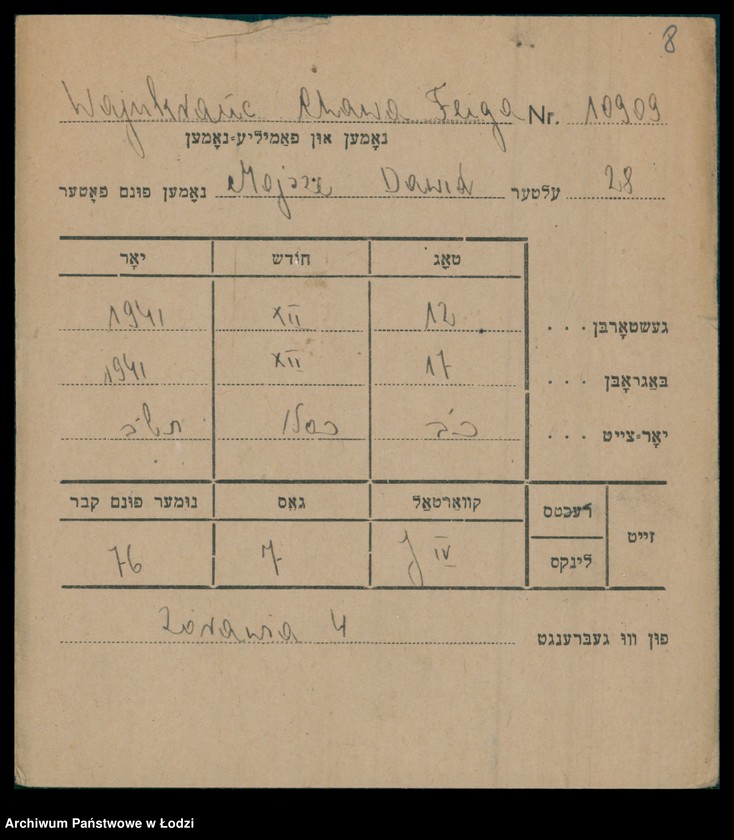 8
Wajnkranc Chawa Fajga Nr. 10909
נאָמען און פאַמיליע=נאָמען
נאָמען פונם פאָטער Mojsze Dawid עלטער 28
טאָג חודש יאָר
געשטאָרבן . . . 12 XII 1941
באַגראָבן . . . 17 XII 1941
יאָר=צייט . . . כ"ב כסלו תש"ב
זייט רעכטס קוואַרטאַל גאַס נומער פונם קבר
לינקס J IV 7 76
פון וווּ געברענגט Żórawia 4
Archiwum Państwowe w Łodzi